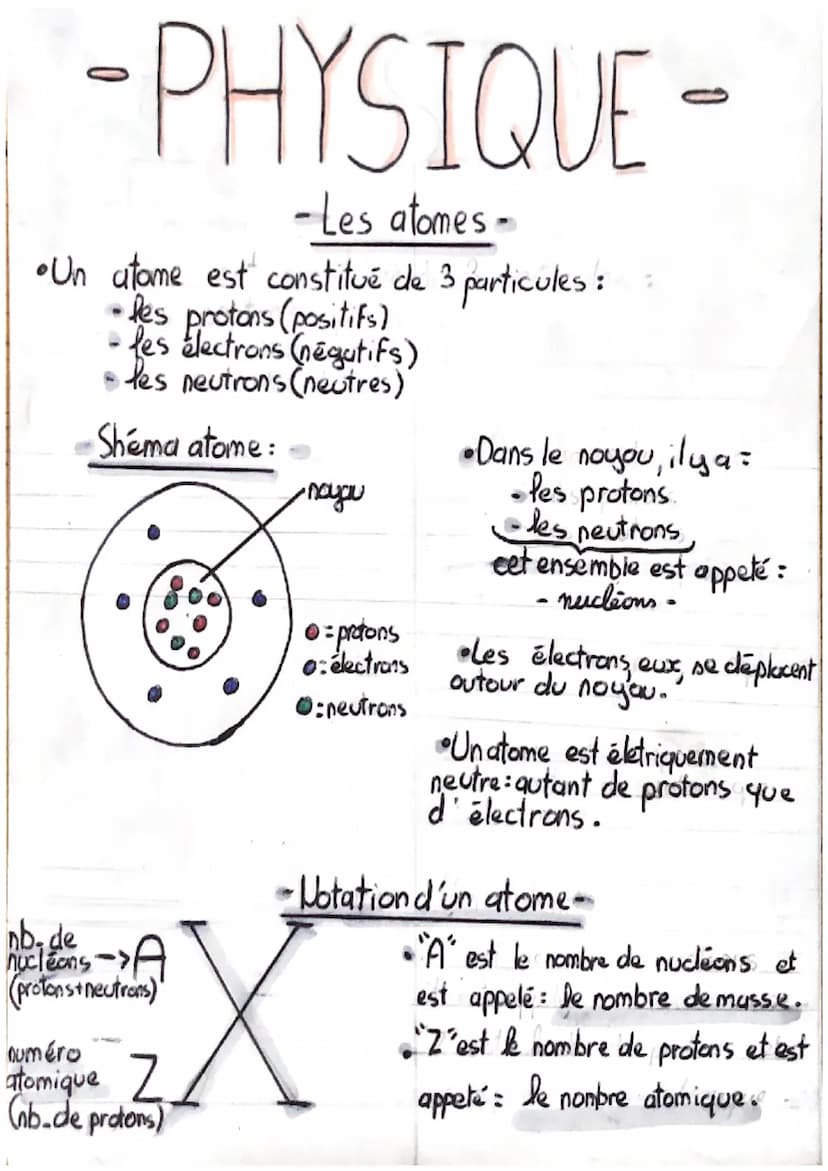 - PHYSIQUE -
- Les atomes -
•Un atome est constitué de 3 particules :
- les protons (positifs)
- les électrons (négatifs)
- les neutrons (neutres)
- Shéma atome : -
noyau
= protons
: électrons
: neutrons
•Dans le noyau, il y a :
- les protons
- les neutrons
cet ensemble est appelé :
- nucléons -
•Les électrons, eux, se déplacent
autour du noyau.
•Un atome est életriquement
neutre : autant de protons que
d'électrons.
- Notation d'un atome -
nb. de
nucléons -> A
(protons + neutrons)
X
numéro
atomique Z
(nb. de protons)
• "A" est le nombre de nucléons et
est appelé : le nombre de masse.
• "Z" est le nombre de protons et est
appelé : le nonbre atomique.